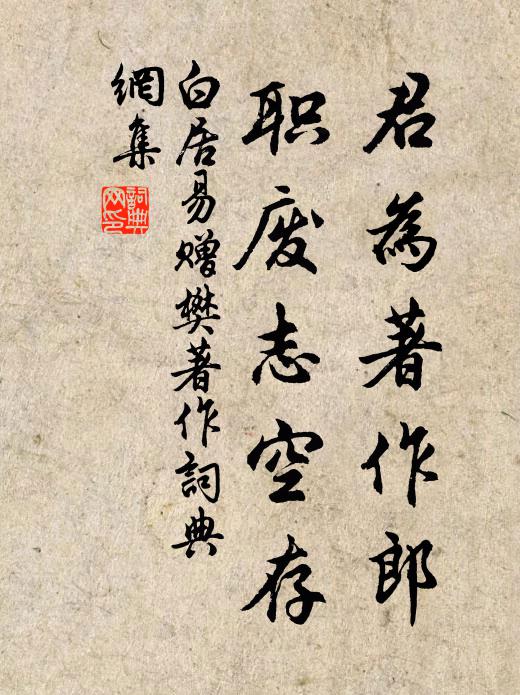 君為著作郎
职废志空存
白居易赠樊著作詞典
網集
詞典
网印